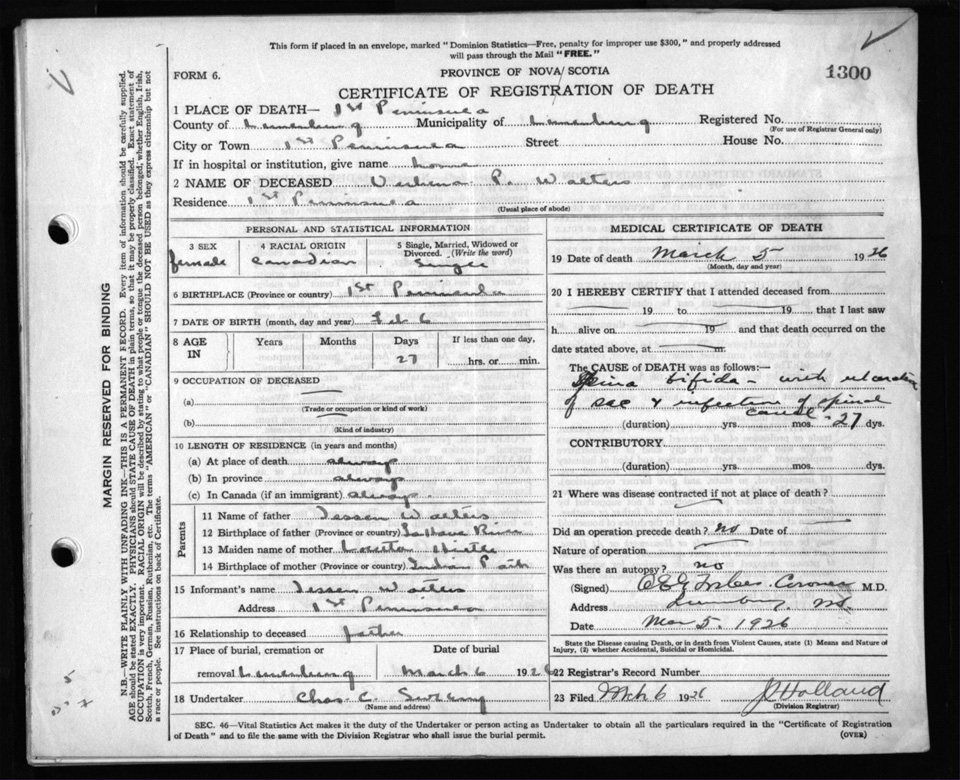 This form if placed in an envelope, marked "Dominion Statistics—Free, penalty for improper use $300," and properly addressed
will pass through the Mail "FREE."
FORM 6.
PROVINCE OF NOVA SCOTIA
1300
CERTIFICATE OF REGISTRATION OF DEATH
1 PLACE OF DEATH— 1st Peninsula
County of Lunenburg Municipality of Lunenburg Registered No.
(For use of Registrar General only)
City or Town 1st Peninsula Street House No.
If in hospital or institution, give name home
2 NAME OF DECEASED P. Walters
Residence 1st Peninsula
(Usual place of abode)
PERSONAL AND STATISTICAL INFORMATION
3 SEX
female
4 RACIAL ORIGIN
Canadian
5 Single, Married, Widowed or
Divorced. (Write the word)
Single
6 BIRTHPLACE (Province or country) 1st Peninsula
7 DATE OF BIRTH (month, day and year) Feb 6
8 AGE
IN
Years
Months
Days
27
If less than one day,
hrs. or min.
9 OCCUPATION OF DECEASED
(a)
(Trade or occupation or kind of work)
(b)
(Kind of industry)
10 LENGTH OF RESIDENCE (in years and months)
(a) At place of death always
(b) In province always
(c) In Canada (if an immigrant) always
Parents
11 Name of father Jessen Walters
12 Birthplace of father (Province or country) LaHave River
13 Maiden name of mother
14 Birthplace of mother (Province or country) Indian Path
15 Informant's name Jessen Walters
Address 1st Peninsula
16 Relationship to deceased father
17 Place of burial, cremation or
removal Lunenburg
Date of burial
March 6 1926
18 Undertaker Chas. C. Sweeny
(Name and address)
MEDICAL CERTIFICATE OF DEATH
19 Date of death March 5 1926
(Month, day and year)
20 I HEREBY CERTIFY that I attended deceased from
19 to 19 that I last saw
h alive on 19 and that death occurred on the
date stated above, at m.
The CAUSE of DEATH was as follows:—
Spina bifida - with ulceration
of sac & infection of spinal
canal
(duration) yrs. mos. 27 dys.
CONTRIBUTORY
(duration) yrs. mos. dys.
21 Where was disease contracted if not at place of death?
Did an operation precede death? no Date of
Nature of operation
Was there an autopsy? no
(Signed) Forbes Coroner M.D.
Address Lunenburg N.S.
Date Mar 5. 1926
State the Disease causing Death, or in death from Violent Causes, state (1) Means and Nature of
Injury, (2) whether Accidental, Suicidal or Homicidal.
22 Registrar's Record Number
23 Filed Mch 6 1926 Holland
(Division Registrar)
SEC. 46—Vital Statistics Act makes it the duty of the Undertaker or person acting as Undertaker to obtain all the particulars required in the "Certificate of Registration
of Death" and to file the same with the Division Registrar who shall issue the burial permit.
(OVER)
MARGIN RESERVED FOR BINDING
N.B.—WRITE PLAINLY WITH UNFADING INK—THIS IS A PERMANENT RECORD. Every item of information should be carefully supplied.
AGE should be stated EXACTLY. PHYSICIANS should STATE CAUSE OF DEATH in plain terms, so that it may be properly classified. Exact statement of
OCCUPATION is very important. RACIAL ORIGIN will be described by stating to what people or tongue the deceased person belonged, whether English, Irish,
Scotch, French, German, Russian, Ruthenian, etc. The terms "AMERICAN" or "CANADIAN" SHOULD NOT BE USED as they express citizenship but not
a race or people. See instructions on back of Certificate.